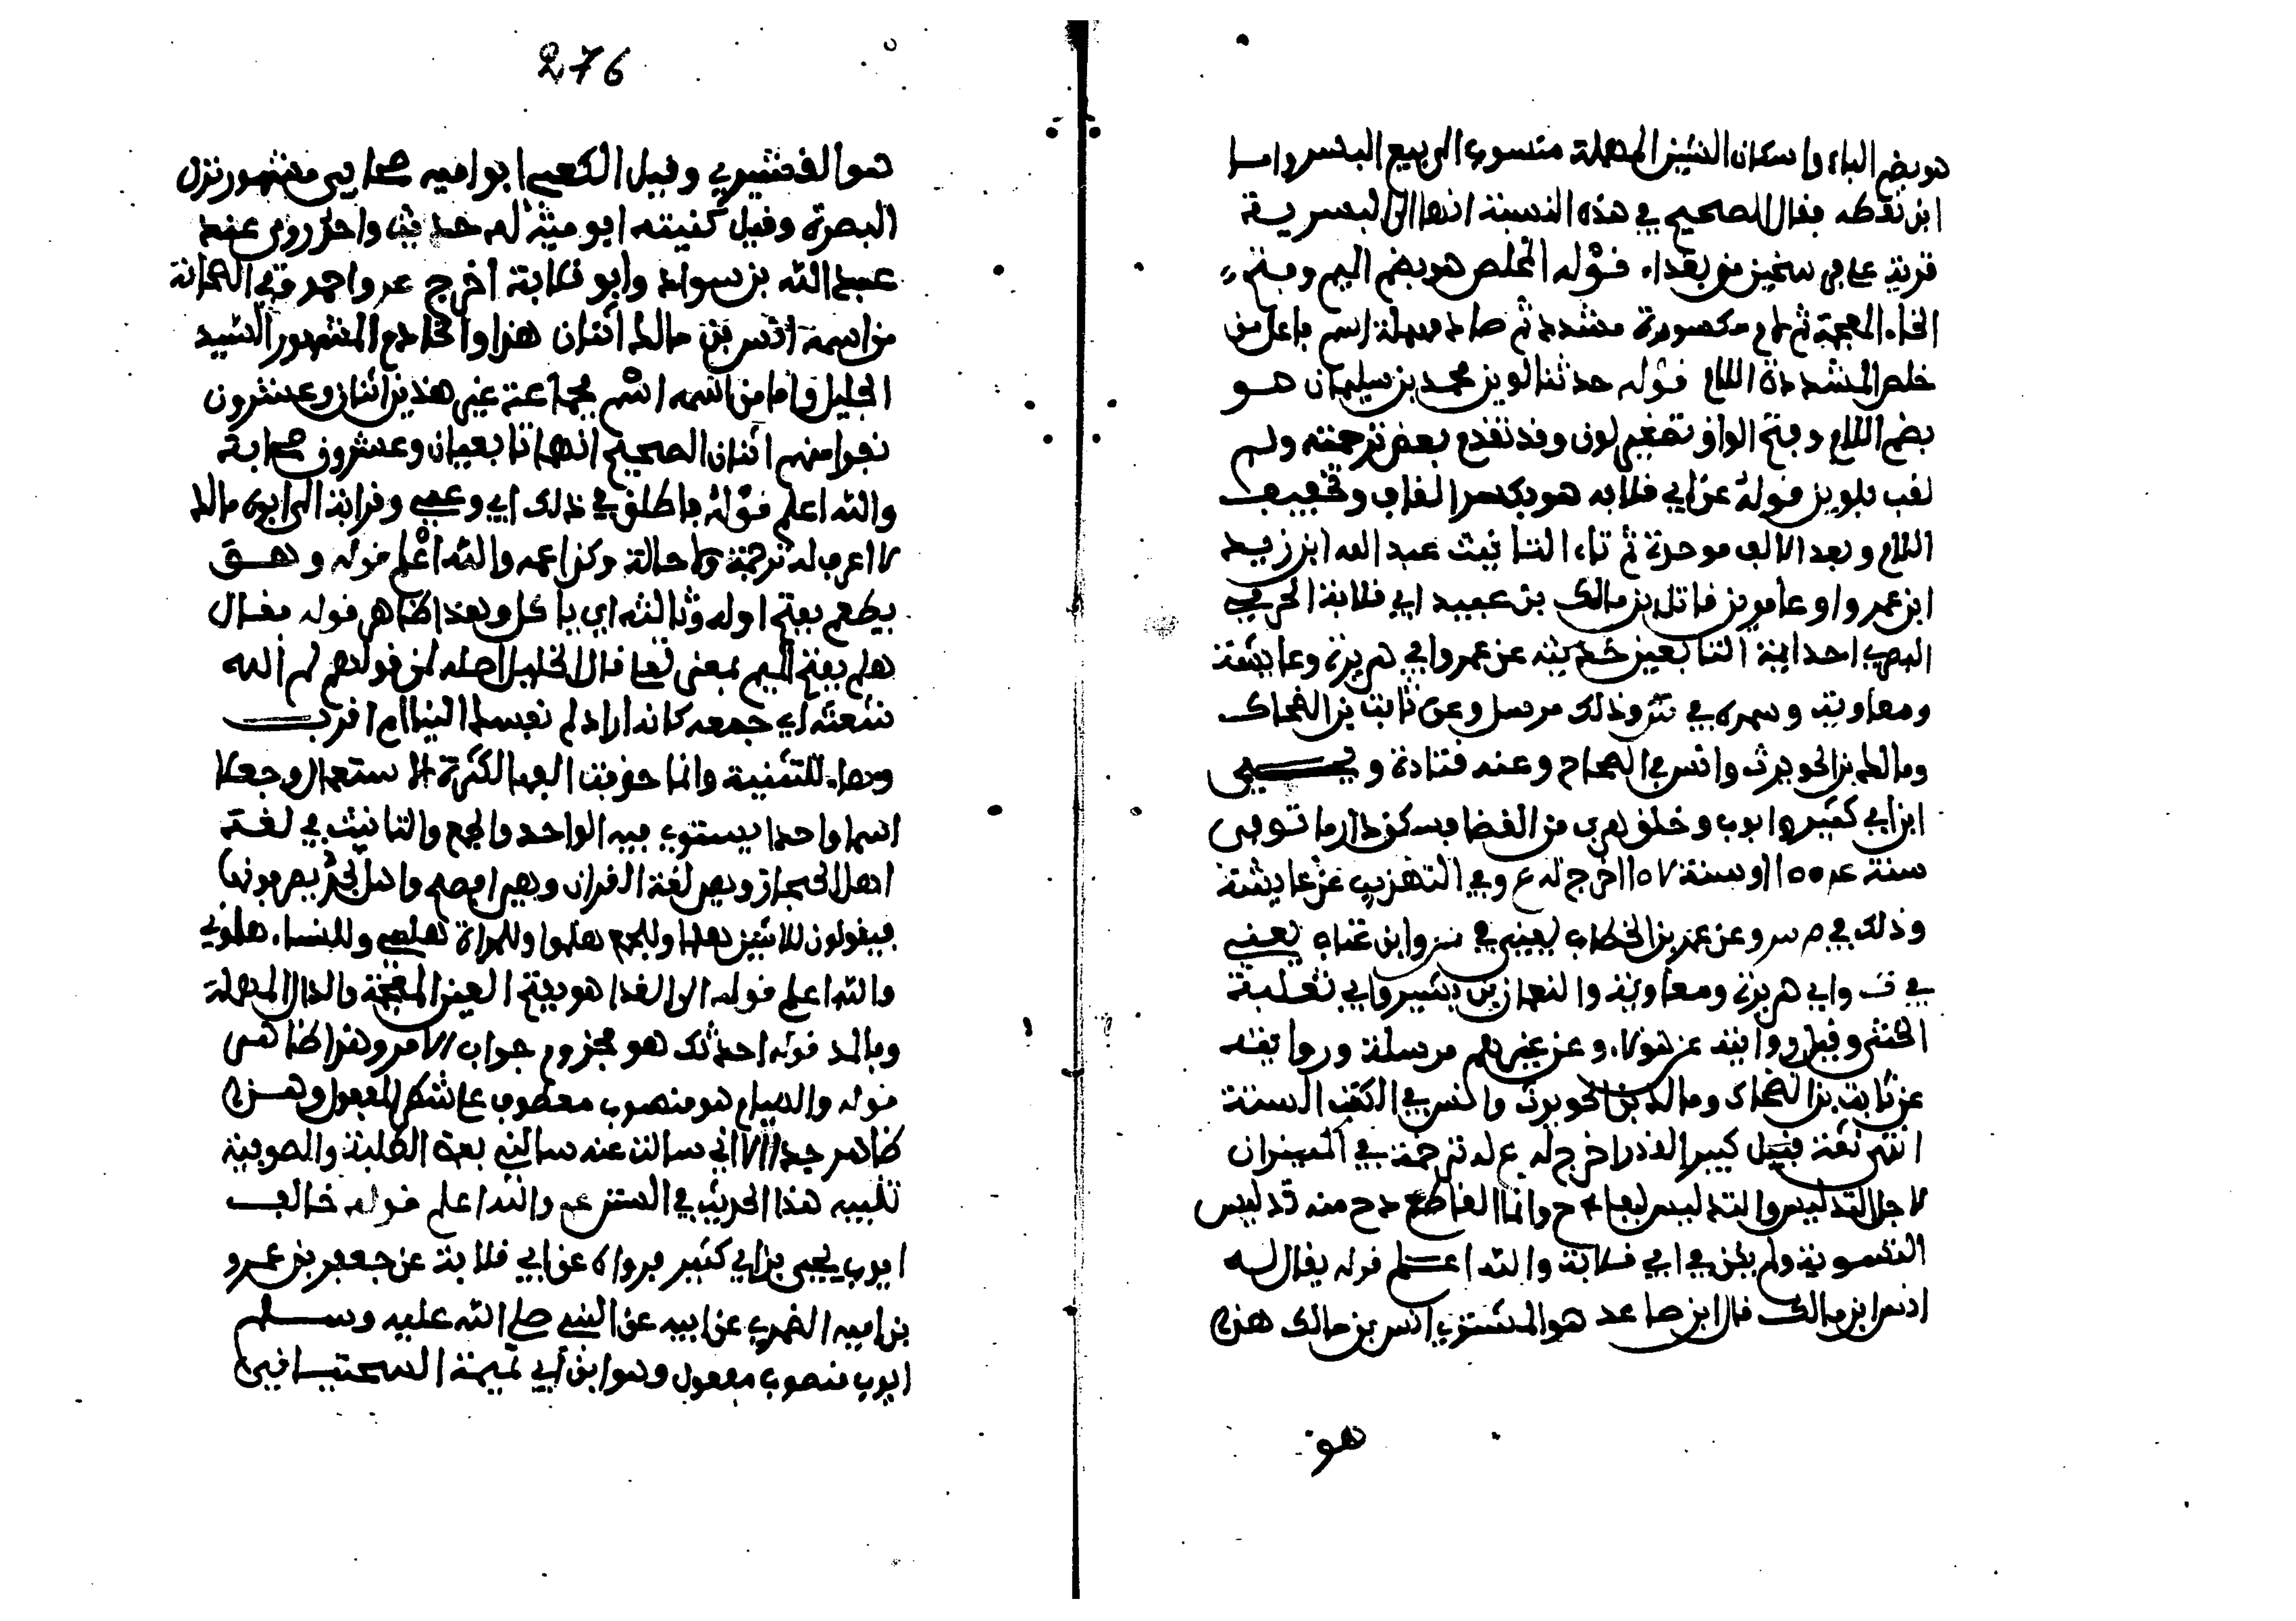 هو بضم الباء واسكان السين المهملة منسوب الى بيع البسر واما
ابن نقطه فقال الصحيح في هذه النسبة انها الى البسرية
قرية على فرسخين من بغداد. قوله المخلص هو بضم الميم وفتح
الخاء المعجمة ثم لام مكسورة مشددة ثم صاد مهملة اسم فاعل من
خلص المشددة اللام قوله حدثنا لوين محمد بن سليمان هو
بضم اللام وفتح الواو تصغير لون وقد تقدم بعض ترجمته ولم
لقب بلوين قوله عن ابي قلابه هو بكسر القاف وتخفيف
اللام وبعد الالف موحدة ثم تاء التانيث عبد الله ابن زيد
ابن عمرو او عامر بن ناتل بن مالك بن عبيد ابي قلابة الجرمي
البصري احد ايمة التابعين حديثه عن عمر وابي هريرة وعايشة
ومعاوية وسمره في وذلك مرسل وعن ثابت بن الضحاك
ومالك بن الحويرث وانس في الصحاح وعنه قتادة ويحيى
ابن ابي كثير وايوب وخلق هرب من القضا فسكن داريا توفي
سنة ١٠٤ او سنة ١٠٧ اخرج له ع وفي التهذيب عن عايشة
وذلك في م س وعن عمر بن الخطاب يعني في س وابن عباس يعني
في ت وابي هريرة ومعاوية والنعمان بن بشير وابي ثعلبة
الخشني وقيل روايته عن هولاء وعن غيرهم مرسلة وروايته
عن ثابت بن الضحاك ومالك بن الحويرث وانس في الكتب الستة
انتهى ثقة قبيل كبير القدر اخرج له ع له ترجمة في الميزان
لاجل التدليس والتدليس ليس بقادح وانما القاطع مدح منه تدليس
التسوية ولم يكن في ابي قلابة والله اعلم قوله يقال له
انس ابن مالك قال ابن صاعد هو القشيري انس بن مالك هذا
هو
276
هو القشيري وقيل الكعبي ابو اميه صحابي مشهور نزل
البصرة وقيل كنيته ابو ميه له حديث واحد روى عنه
عبد الله بن سواده وابو قلابة اخرج عه واحمد وفي الصحابة
من اسمه انس بن مالك اثنان هذا والخادم المشهور السيد
الجليل واما من اسمه انس فجماعة غير هذين اثنان وعشرون
نفرا منهم اثنان الصحيح انهما تابعيان وعشرون صحابة
والله اعلم قوله فاطلق في ذلك اي وعمي وقرابة الى ابوه مالك
لا اعرف له ترجمة ولا حالة وكذا عمه والله اعلم قوله وهو
يطعم بفتح اوله وثالثه اي ياكل وهذا ظاهر قوله فقال
هلم بفتح الميم بمعنى تعا قال الخليل اصله لم من قولهم لم الله
شعثه اي جمعه كانه اراد لم نفسك الينا ام اقرب
وها. للتنبيه وانما حذفت الفها لكثرة الاستعمال وجعلا
اسما واحدا يستوي فيه الواحد والجمع والتانيث في لغة
اهل الحجاز وهي لغة القران وهي افصح واهل نجد يصرفونها
فيقولون للاثنين هلما وللجمع هلموا وللمراة هلمي وللنساء. هلمن
والله اعلم قوله الى الغدا هو بفتح الغين المعجمة والدال المهملة
وبالمد قوله احدثك هو مجزوم جواب الامر وهذا ظاهر
قوله والصيام هو منصوب معطوف على شطر المفعول وهذا
ظاهر جدا الا اني سالت عنه سالني بعض الطلبة والصوفية
تنبيه هذا الحديث في السنن عه والله اعلم قوله خالف
ايوب يحيى بن ابي كثير فرواه عن ابي قلابة عن جعفر بن عمرو
بن اميه الضمري عن ابيه عن النبي صلى الله عليه وسلم
ايوب منصوب مفعول وهو ابن ابي تميمة السختياني